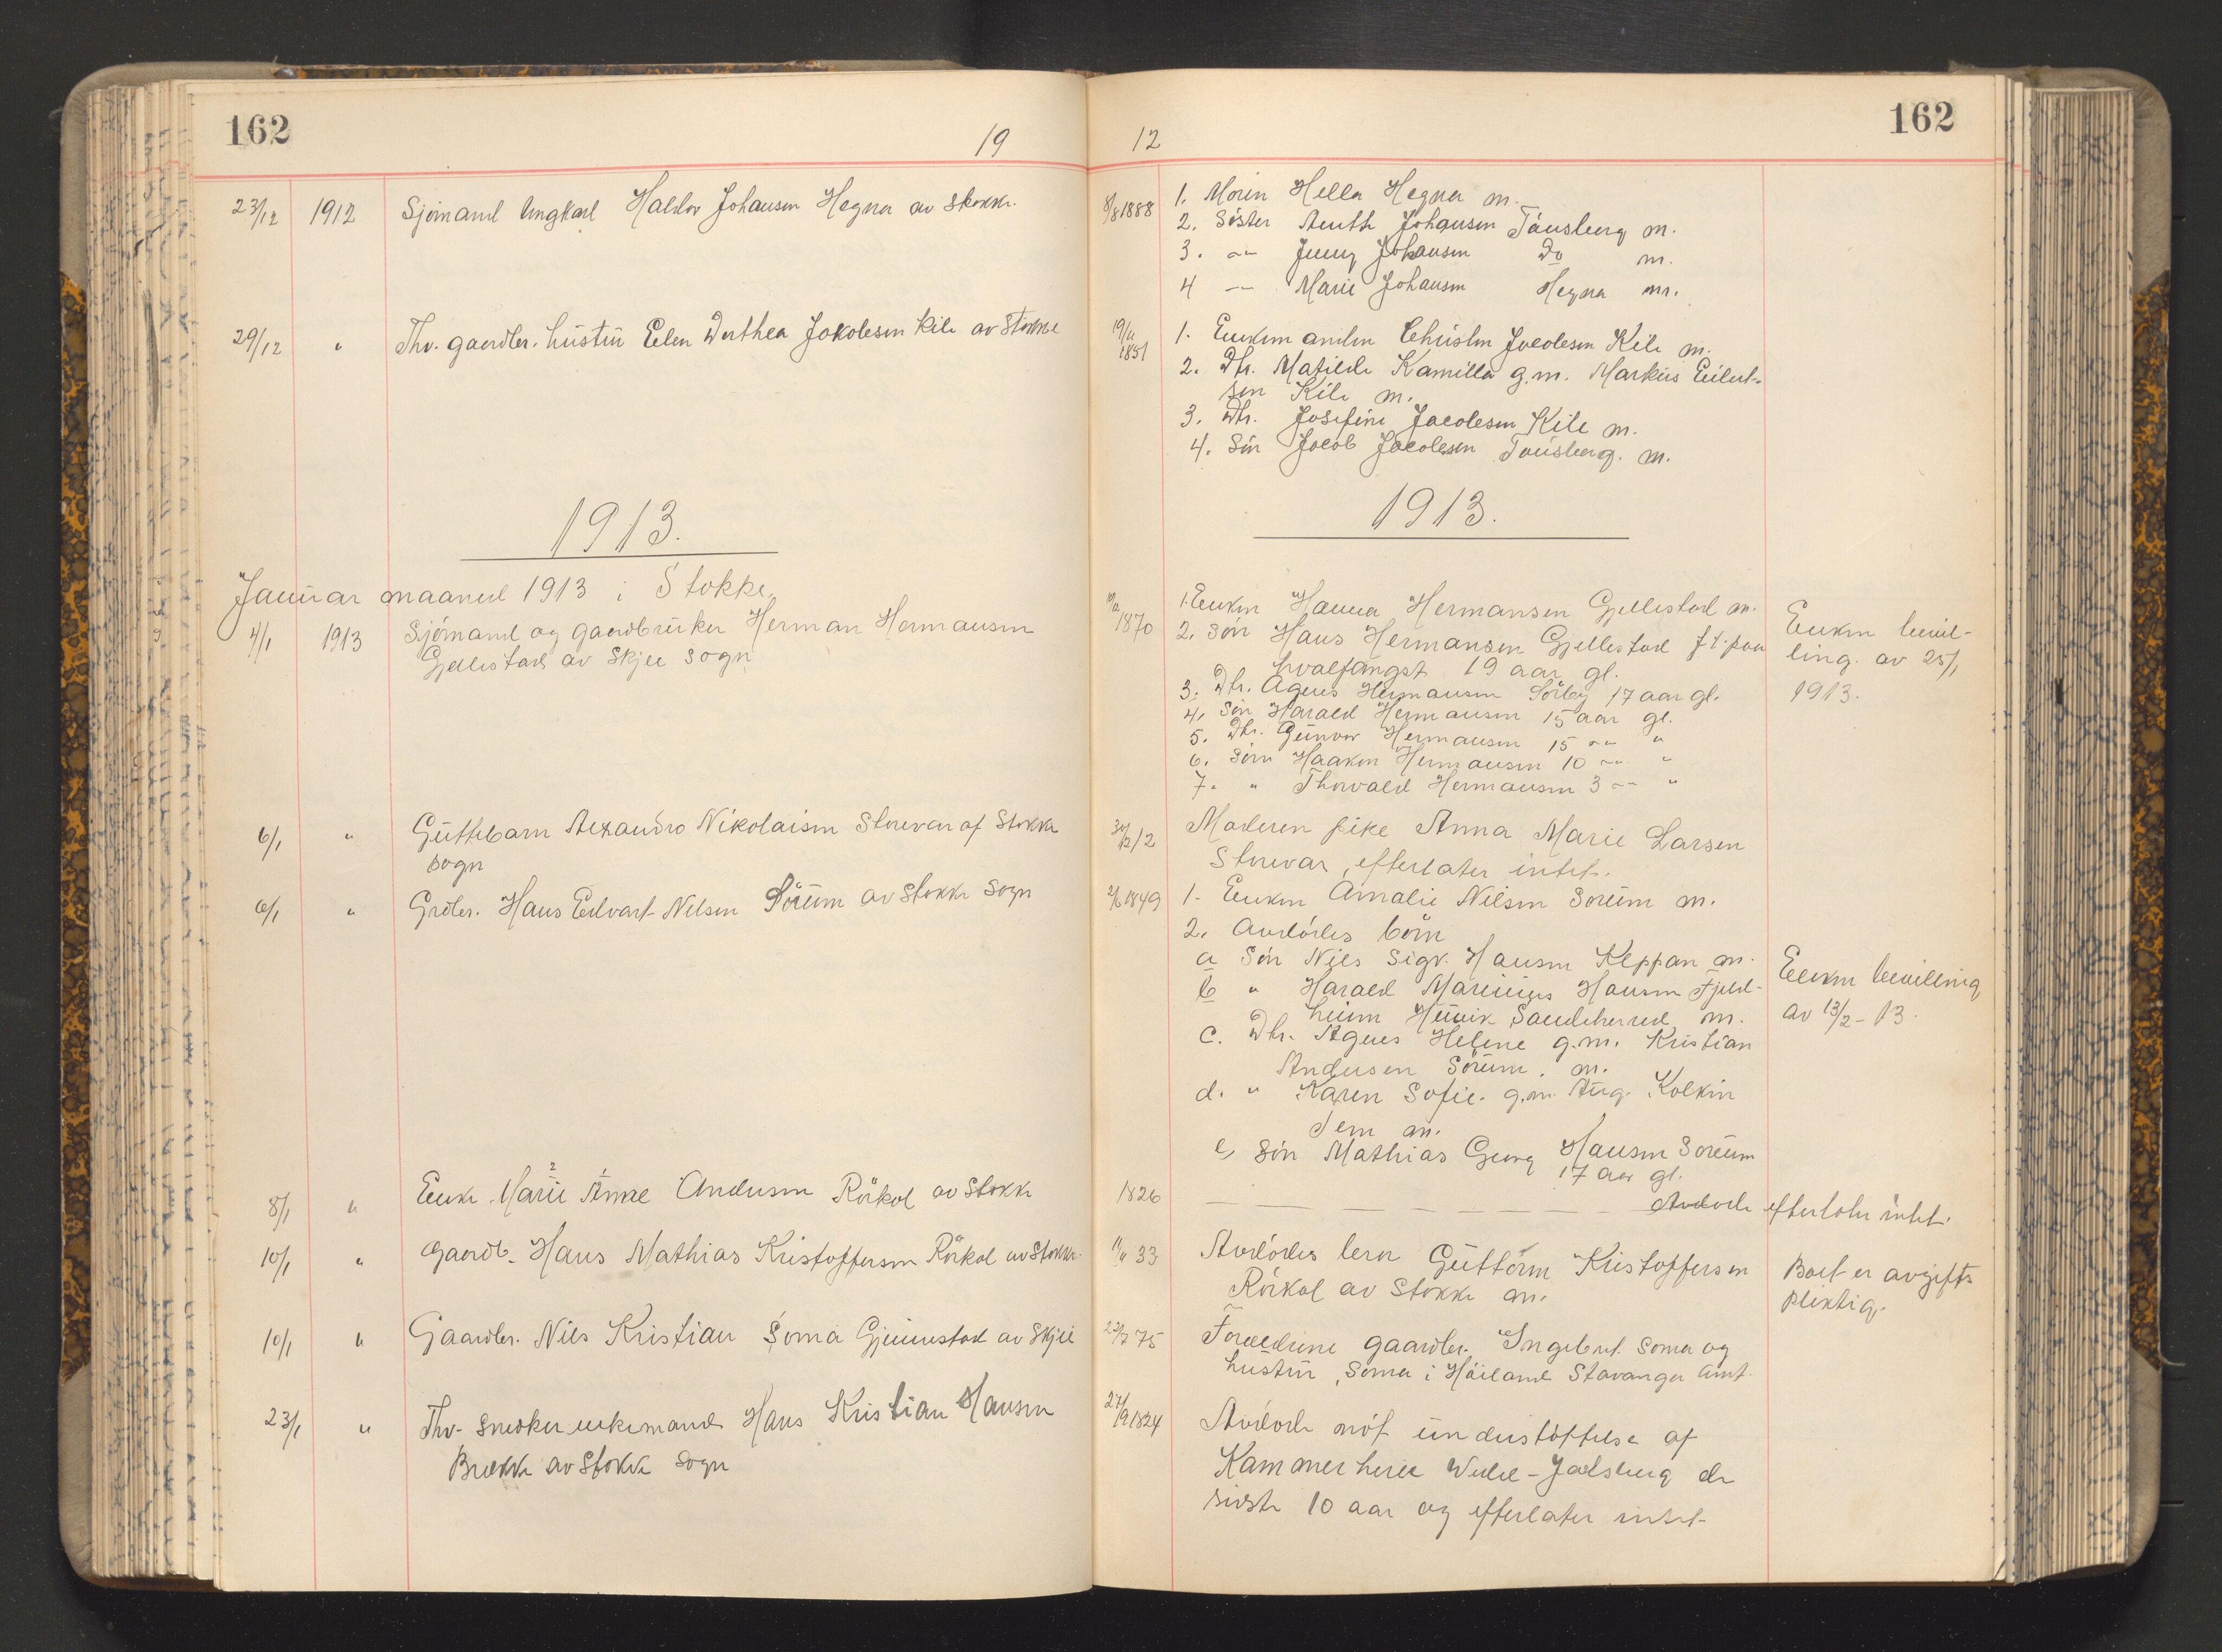 162
19
23/12 1912 Sjömand Ungkarl Haldor Johansen Hegna av Stokke.
29/12 " Thv. gaardbr. hustru Elen Dorthea Jakobsen Kile av Stokke
1913.
Januar maaned 1913 i Stokke
4/1 1913 Sjömand og gaardbruker Herman Hermansen
Gjellestad av Skjee sogn
6/1 " Guttebarn Alexandro Nikolaisen Storevar af Stokke
sogn
6/1 " Grdbr. Hans Edvart Nilsen Sörum av Stokke sogn
8/1 " Enke Marie Anne Andersen Rörkol av Stokke
10/1 " Gaardb. Hans Mathias Kristoffersen Rörkol av Stokke.
10/1 " Gaardbr. Nils Kristian Soma Gjennestad av Skjee
23/1 " Thv. snedker enkemand Hans Kristian Hansen
Brekke av Stokke sogn
162
12
8/8 1888 1. Moren Hella Hegna m.
2. Söster Johansen Tönsberg m.
3. -"- Jenny Johansen Do m.
4 -"- Marie Johansen Hegna m.
1851 1. Enkemanden Christen Jacobsen Kile m.
2. Dtr. Matilde Kamilla g.m. Markus Eilert-
sen Kile m.
3. Dtr. Josefine Jacobsen Kile m.
4. Sön Jacob Jacobsen Tönsberg. m.
1913.
1870 1. Enken Hanna Hermansen Gjellestad m.
2. Sön Hans Hermansen Gjellestad f.t. paa
hvalfangst 19 aar gl.
3. Dtr. Agnes Hermansen Sörby 17 aar gl.
4. Sön Harald Hermansen 15 aar gl.
5. Dtr. Gunvor Hermansen 15 -"- "
6. Sön Haakon Hermansen 10 -"- "
7. " Thorvald Hermansen 3 -"- "
Enken bevil-
ling. av 25/1
1913.
30/12 12 Moderen pike Anna Marie Larsen
Storevar, efterlater intet.
2/6 1849 1. Enken Amalie Nilsen Sorum m.
2. Avdödes börn
a Sön Nils Sigv. Hansen Kleppan m.
b " Harald Marinius Hansen Fjeld-
heim Hunvik Sandeherred m.
c. Dtr. Agnes Helene g.m. Kristian
Andersen Sörum. m.
d. " Karen Sofie. g.m. Aug. Kolkin
Jem m.
e, Sön Mathias Georg Hansen Sorum
17 aar gl.
Enken bevilling
av 13/2 - 13.
1826 — — — — — — — Avdöde efterlater intet.
11/11 33 Avdödes bror Guttorm Kristoffersen
Rörkol av Stokke m.
Boet er avgifts
pliktig.
22/7 75 Forældrene gaardbr. Ingebret Soma og
hustru, Soma i Höiland Stavanger Amt.
27/9 1824 Avdöde nöt understöttelse af
Kammerherre Wedel-Jarlsberg de
sidste 10 aar og efterlater intet